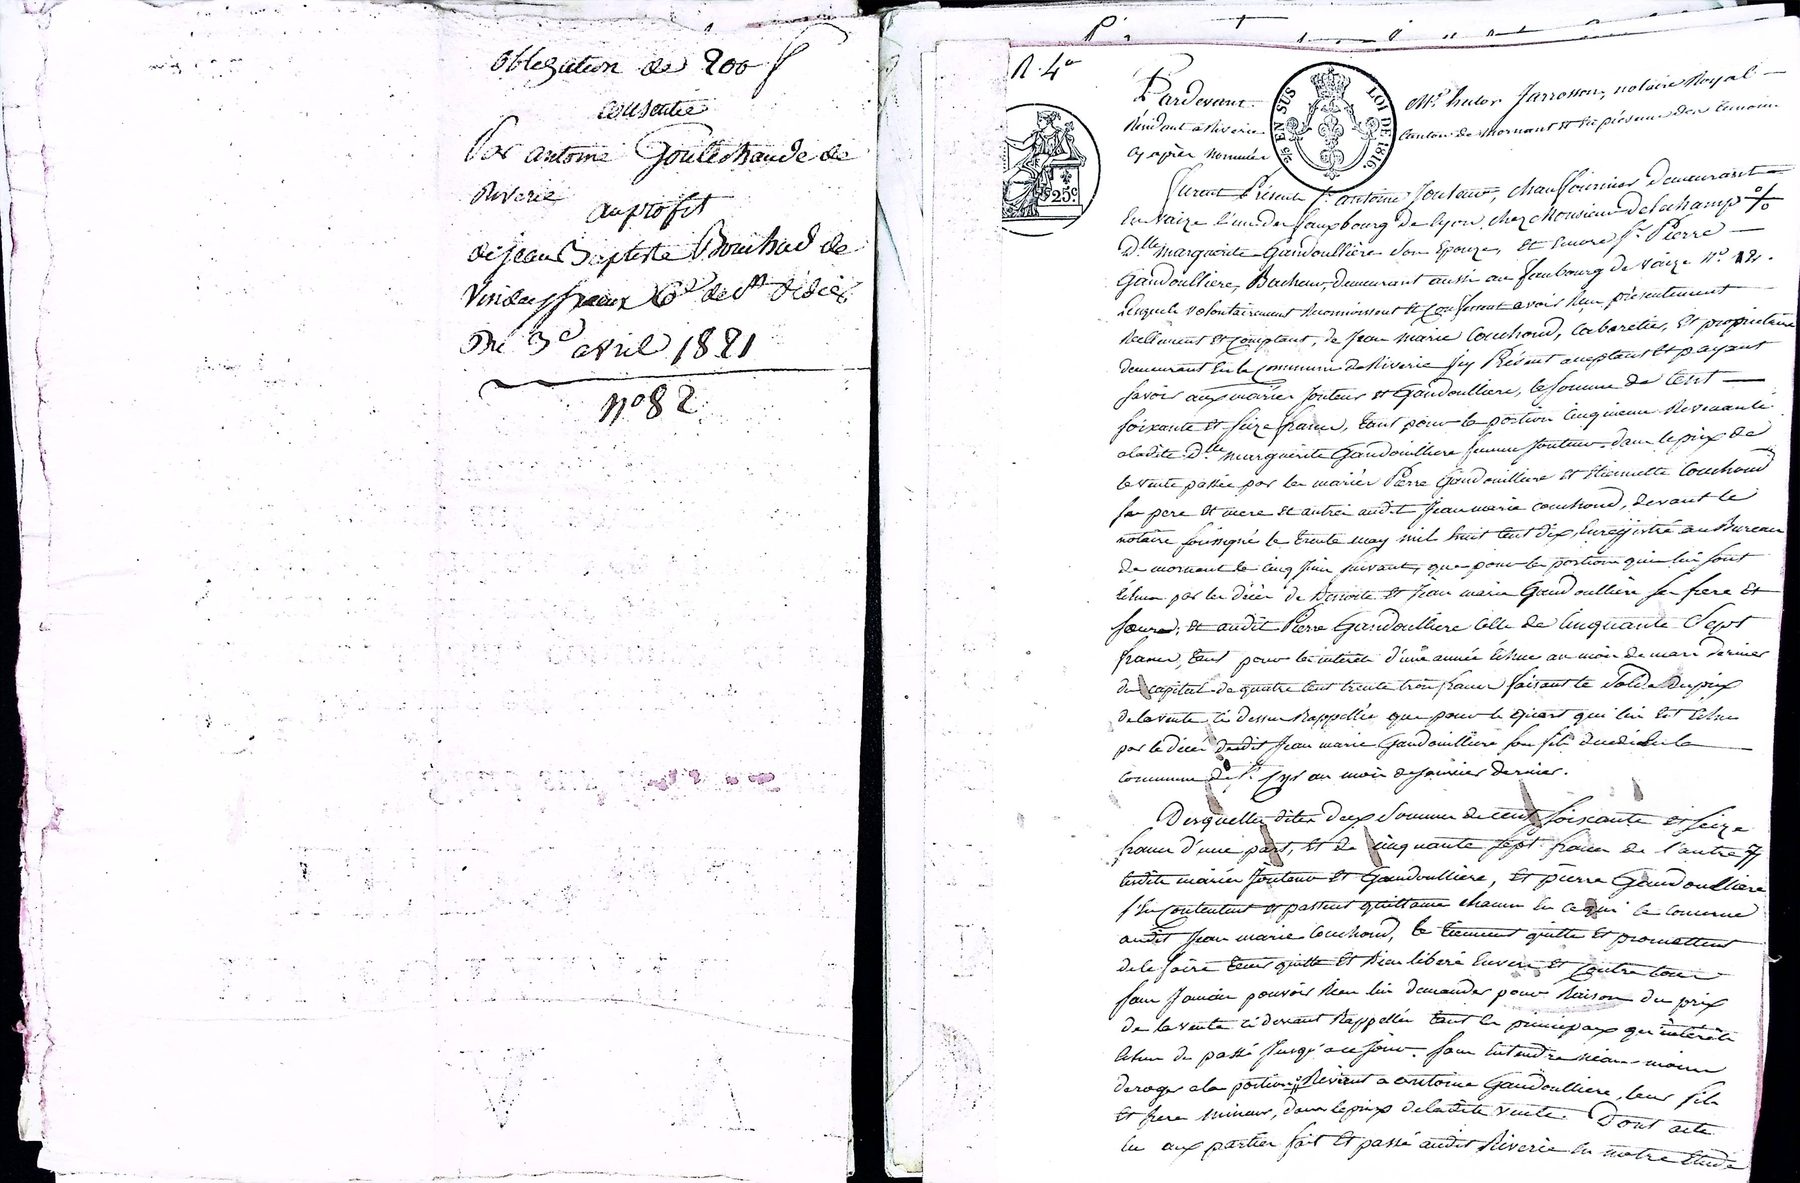 obligation de 200 f
consentie
Par antoine Goutechaude de
Riverie
au profit
de jean Baptiste Bouchud de
Du 3e avril 1821
n° 82
N. 4e
25 EN SUS
LOI DE 1816.
25c.
Pardevant Me hector Jarrosson, notaire Royal
Résidant a Riverie canton de mornant et En présence des temoins
cy après nommés
furent Présent Sr. antoine Jouteur, chauffournier demeurant
En Vaize l'un des fauxbourg de Lyon, chez Monsieur Delachamp
Dlle marguerite Gaudoullière son Epouze, et Encore Sr Pierre
Gaudoulliere, Bucheur, demeurant aussi au faubourg de Vaize n° 12.
Lesquels volontairement Reconnoissent et Confessent avoir Reçu présentement
Réellement et Comptant, de Jean marie Couchoud, Cabaretier, et propriétaire
demeurant En la Commune de Riverie Icy Présent acceptant et payant
savoir aux mariés Jouteur et Gaudoulliere, la somme de Cent
soixante et seize francs, tant pour la portion Cinquieme Revenante
a ladite Dlle marguerite Gaudouilliere femme Jouteur dans le prix de
la vente passée par les mariés Pierre Gaudouilliere et Etiennette Couchoud
ses pere et mere et autres audit Jean marie couchoud, devant le
notaire soussigné le trente may mil huit cent dix, Enregistré au Bureau
de mornant le cinq Juin suivant, que pour la portion qui lui sont
Echue par les décès de Benoite et Jean marie Gaudoulliere ses frere et
soeurs, et audit Pierre Gaudoulliere celle de Cinquante Sept
francs, tant pour les interets d'une année Echue au mois de mars dernier
du capital de quatre cent trente trois francs faisant le Solde du prix
de la vente ci dessus Rappellée que pour le quart qui lui Est Echue
par le décès dudit Jean marie Gaudouilliere son fils décédé En la
commune de St. Cyr au mois de Janvier dernier.
Desquelles dites deux Sommes de cent soixante et seize
francs d'une part, et de cinquante sept francs de l'autre
lesdits mariés Jouteur et Gaudoulliere, et pierre Gaudoulliere
s'En Contentent et passent quittance chacun En ce qui le concerne
audit Jean marie Couchoud, le tiennent quitte et promettent
de le faire tenir quitte et Bien libéré Envers et Contre tous
sans Jamais pouvoir Rien lui demander pour Raison du prix
de la vente ci devant Rappellée tant en principaux qu'intérêts
Echus du passé Jusqu'a ce Jour. sans Entendre néan-moins
deroger a la portion Revenant a antoine Gaudoulliere, leur fils
et frere mineur, dans le prix de ladite vente. Dont acte
lu aux parties fait et passé audit Riverie En notre Etude